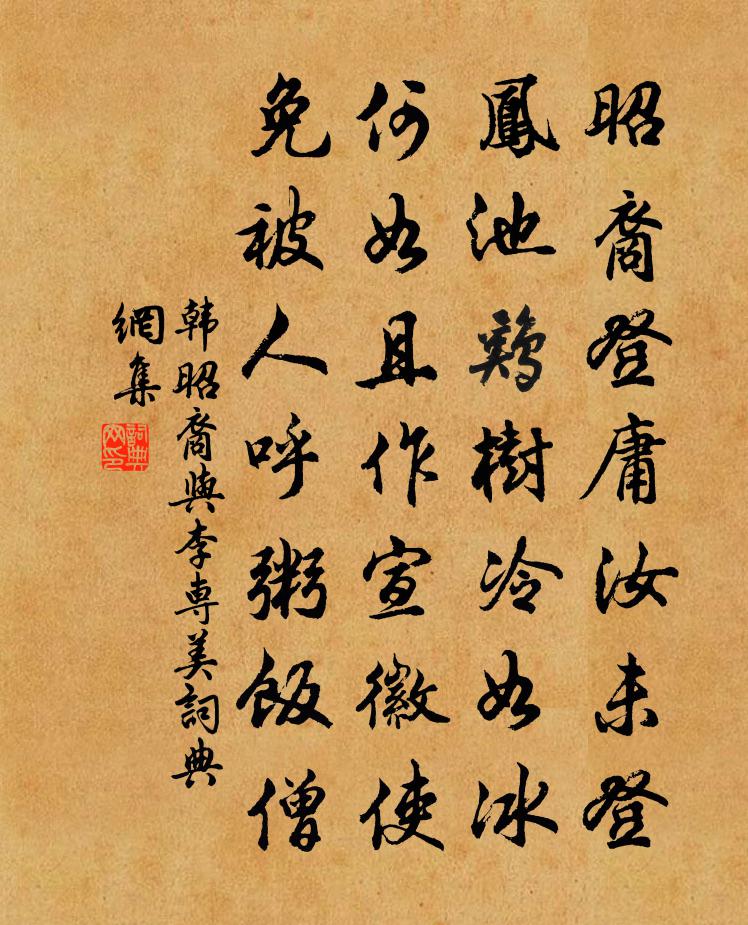 昭裔登庸汝未登
鳳池鷄樹冷如冰
何如且作宣徽使
免被人呼粥飯僧
韩昭裔與李専美詞典
網集
詞典
网印